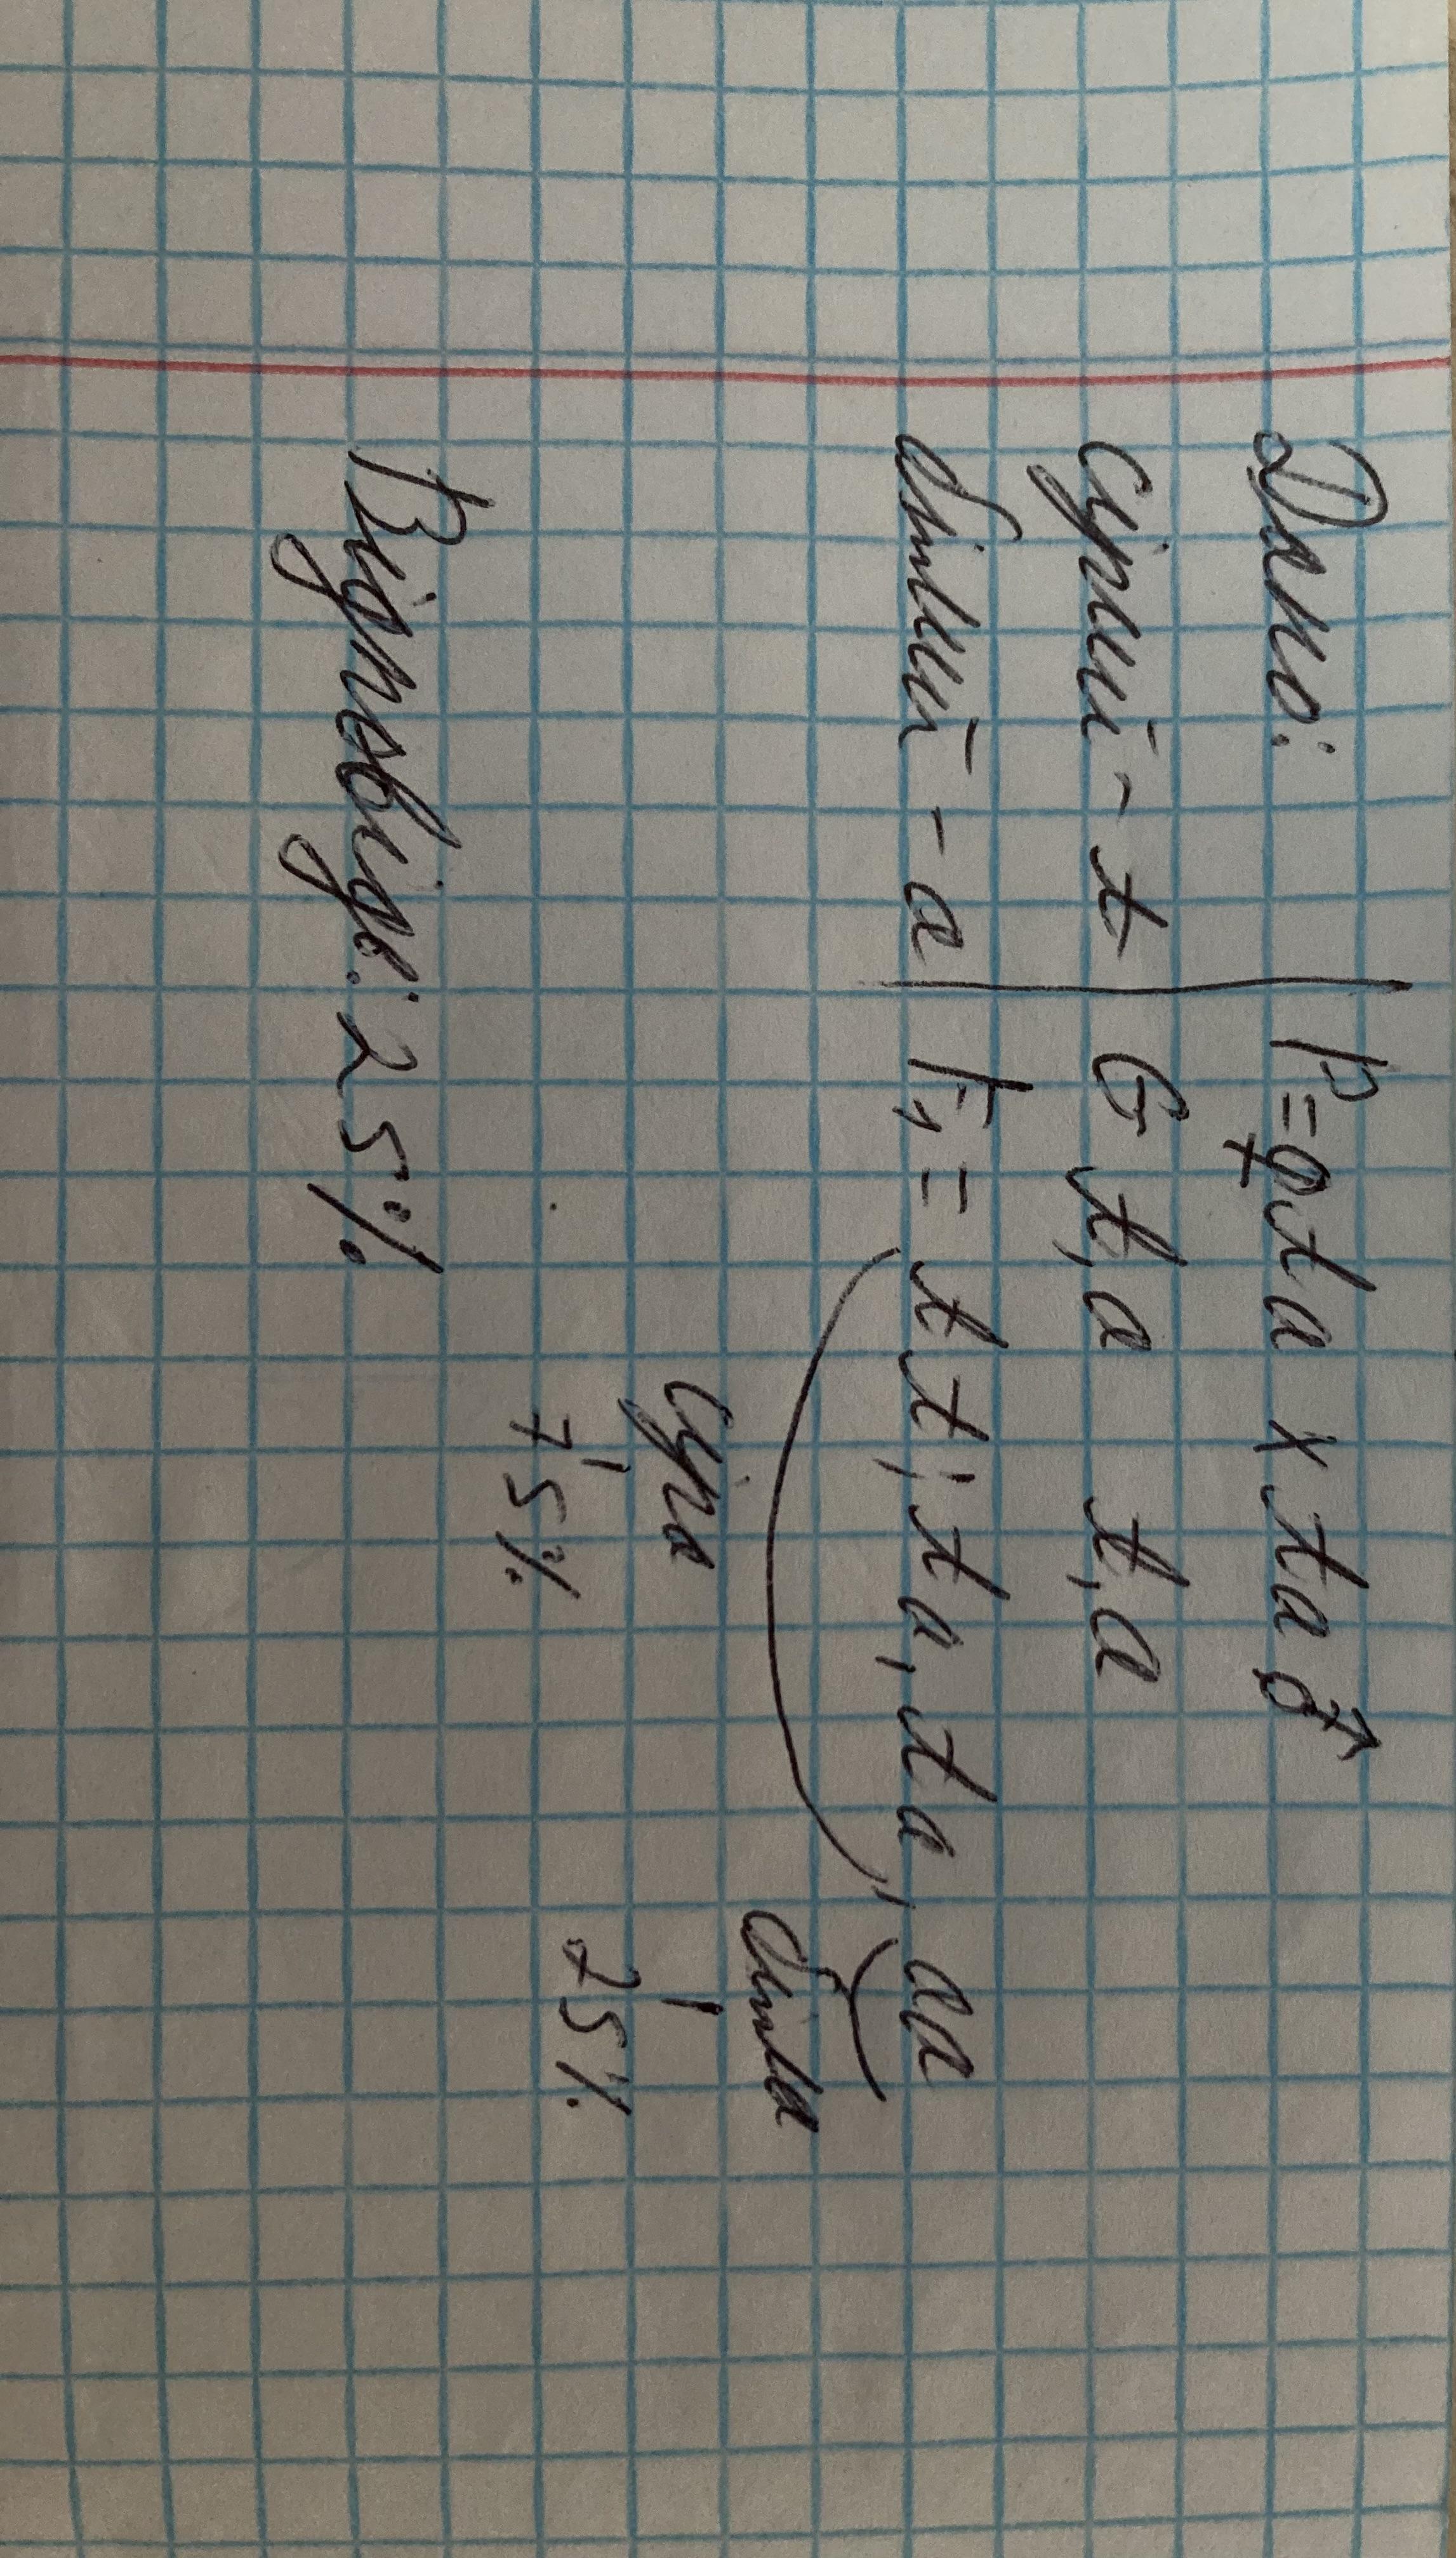 Дано:
Сірий - A
білий - a
P=♀Aa x Aa♂
G A, a A, a
F₁ = AA; Aa, Aa, aa
Сіра біла
75% 25%
Відповідь: 25%